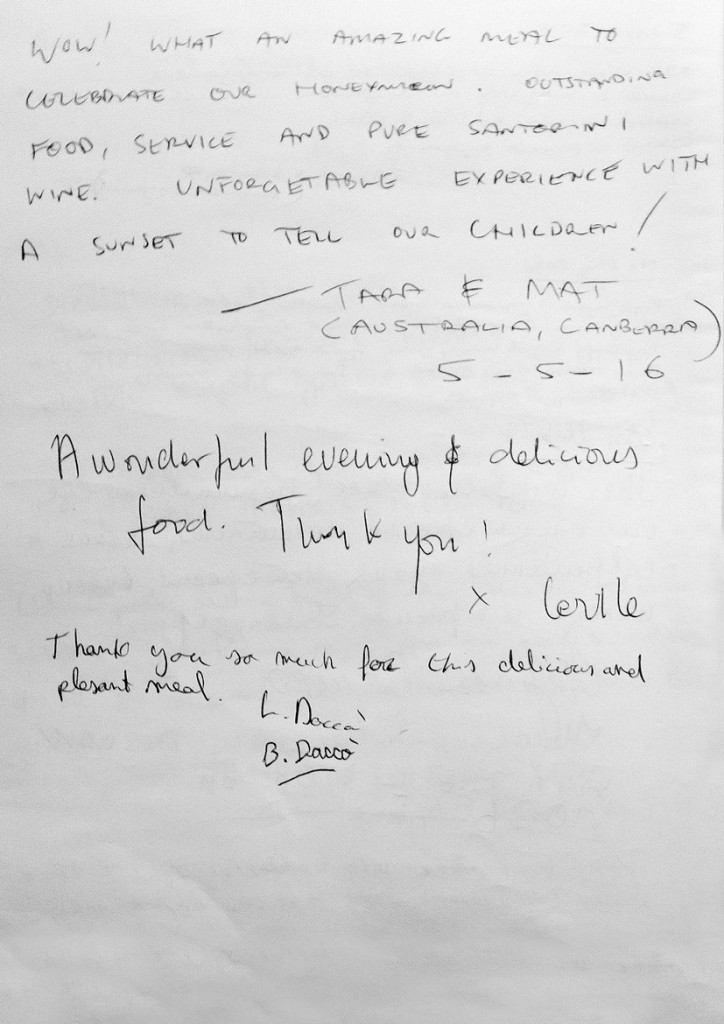 WOW! WHAT AN AMAZING MEAL TO
CELEBRATE OUR HONEYMOON. OUTSTANDING
FOOD, SERVICE AND PURE SANTORINI
WINE. UNFORGETABLE EXPERIENCE WITH
A SUNSET TO TELL OUR CHILDREN!
— TARA & MAT
(AUSTRALIA, CANBERRA)
5-5-16
A wonderful evening & delicious
food. Thank you!
x
Thanks you so much for this delicious and
plesant meal.
L. Daccò
B. Daccò